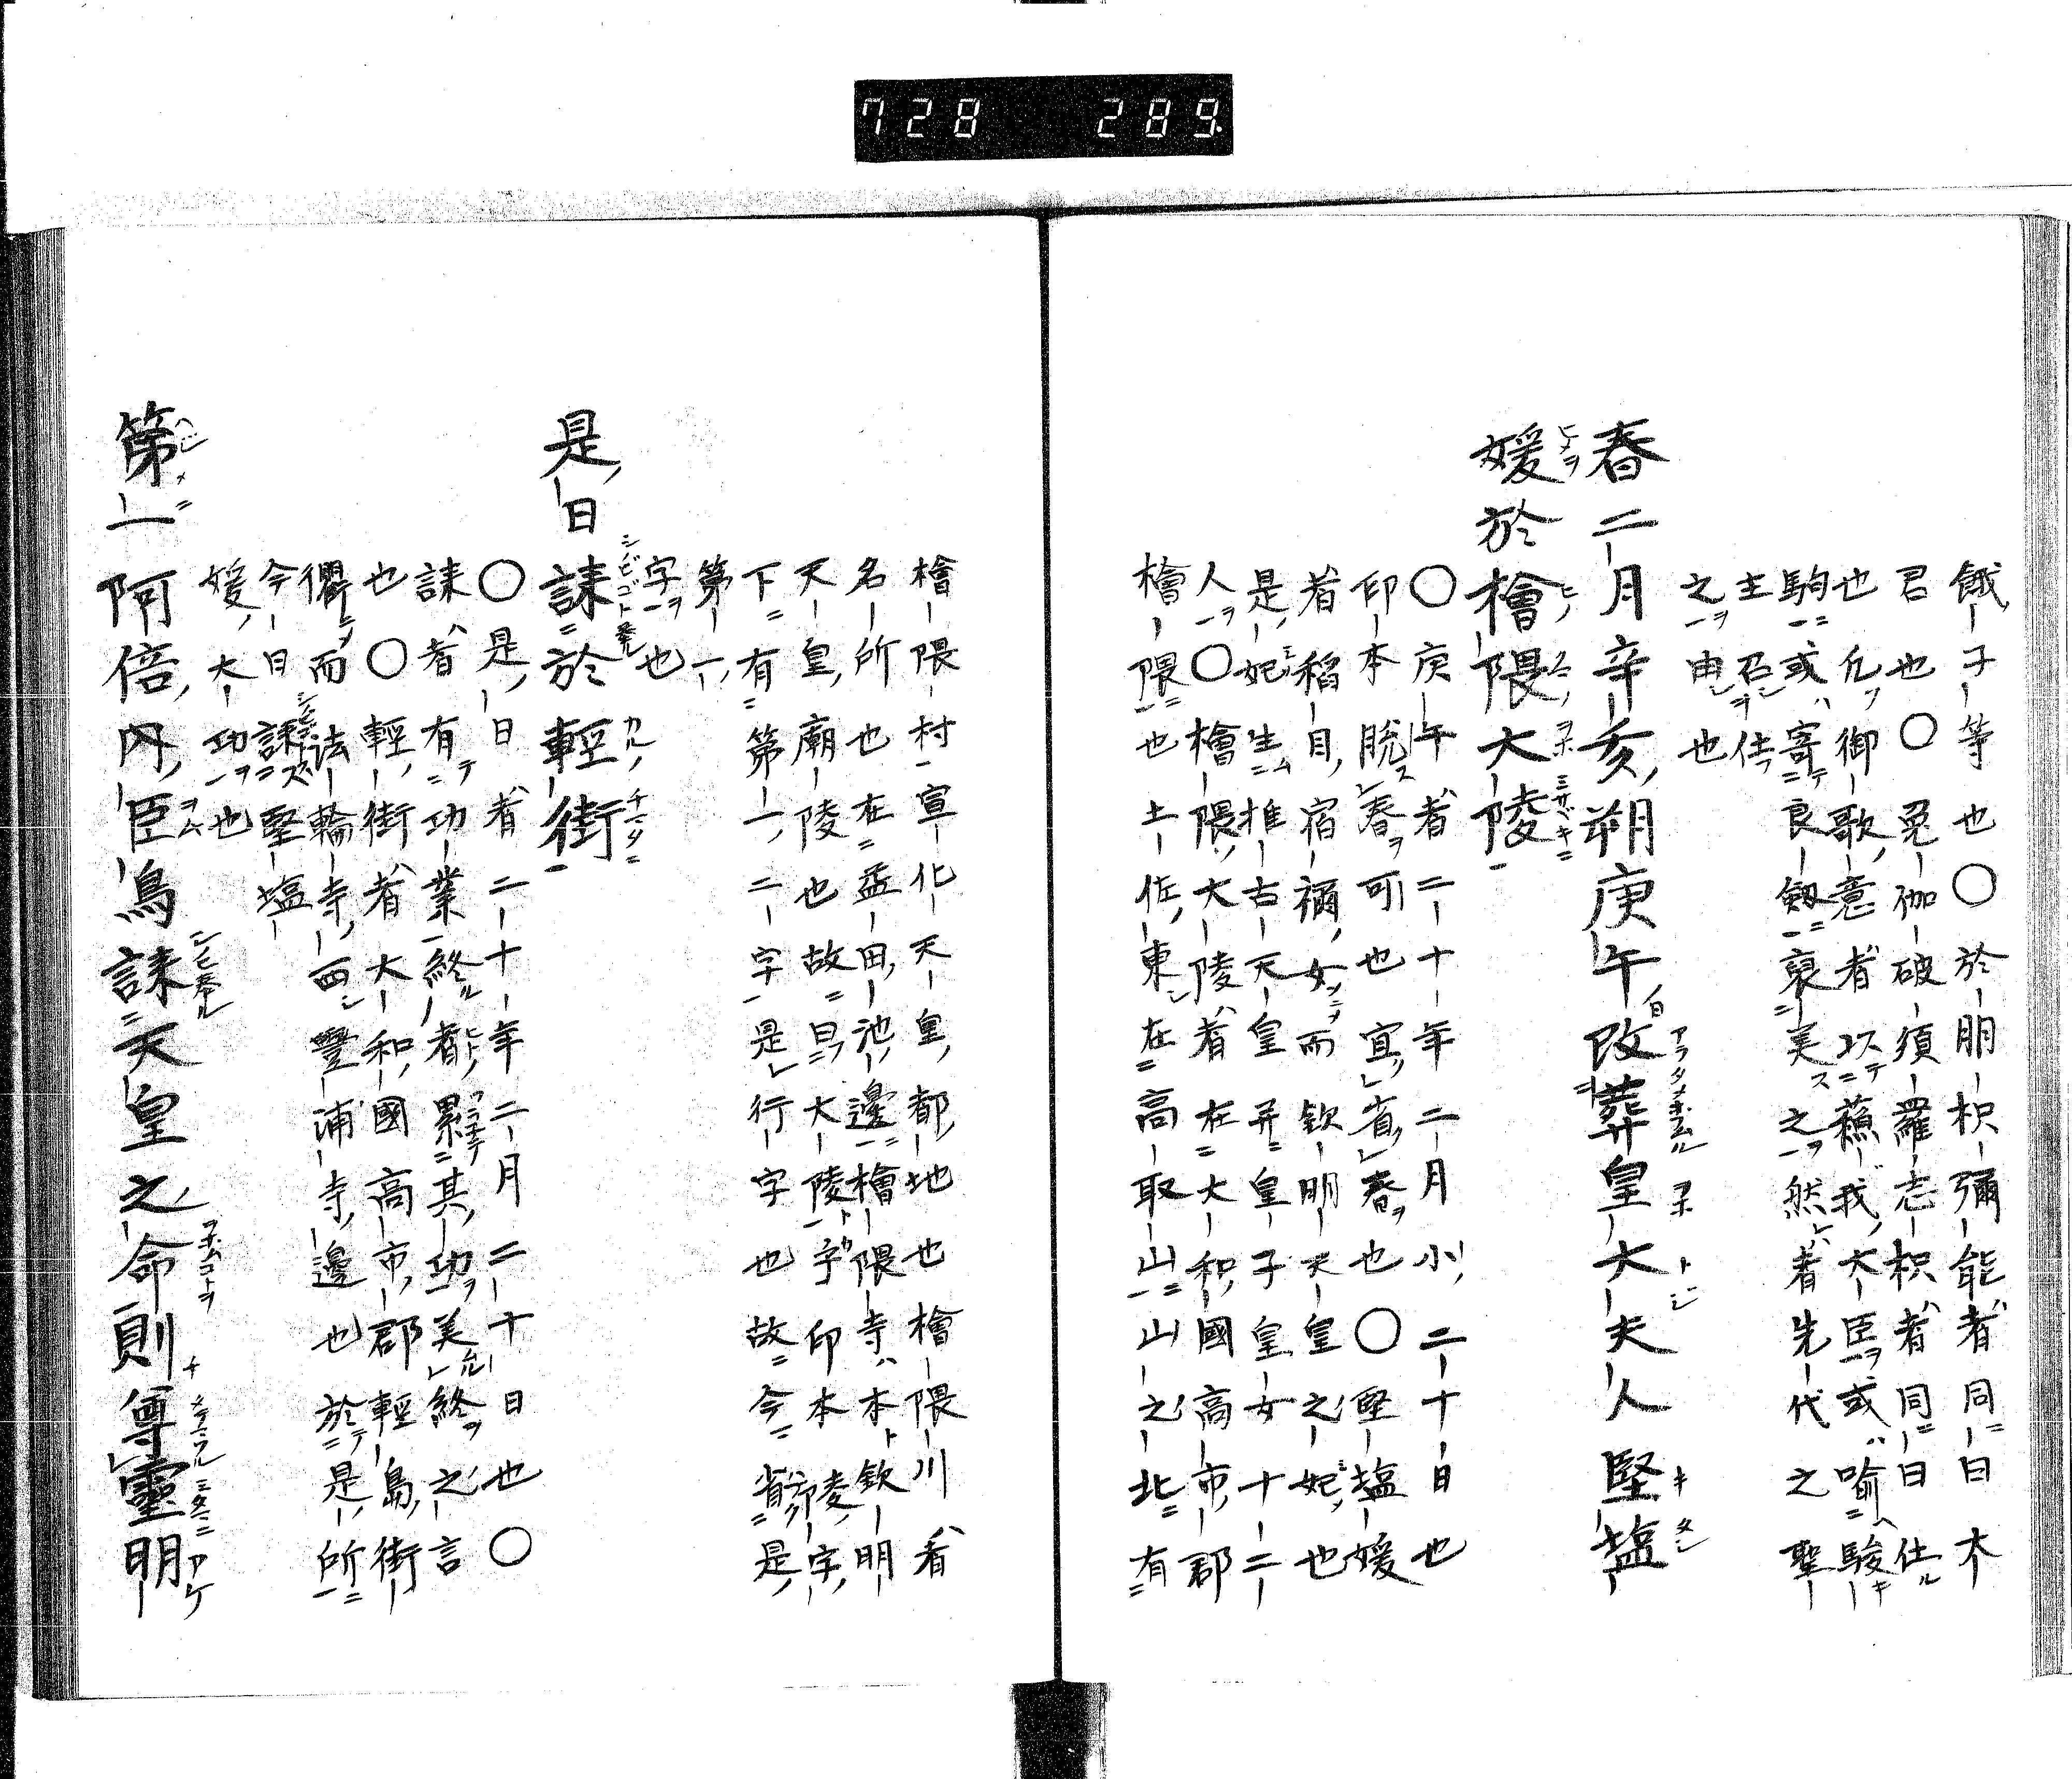 728 289
餓子等也〇於朋枳彌能者同曰大
君也〇兎伽破須羅志枳者同曰仕
也凢御歌意者以蘓我大臣或喻駿
駒或寄良劔襃美之然者先代之聖
主召仕
之由也
春二月辛亥朔庚午改葬皇大夫人堅塩
媛於檜隈大陵
〇庚午者二十年二月小二十日也
印本脱春可也宜省春也〇堅塩媛
者稻目宿禰女而欽明天皇之妃也
是妃生推古天皇并皇子皇女十二
人〇檜隈大陵者在大和國高市郡
檜隈也土佐東在高取山山之北有
檜隈村宣化天皇都地也檜隈川者
名所也在益田池邊檜隈寺本欽明
天皇廟陵也故曰大陵乎印本陵字
下有第一二字是行字也故今省是
第一
字也
是日誄於輕街
〇是日者二十年二月二十日也〇
誄者有功業終者累其功美終之言
也〇輕街者大和國高市郡輕島街
衢而法輪寺西豐浦寺邊也於是所
今日誄堅塩
媛大功也
第一阿倍内臣鳥誄天皇之命則奠靈明